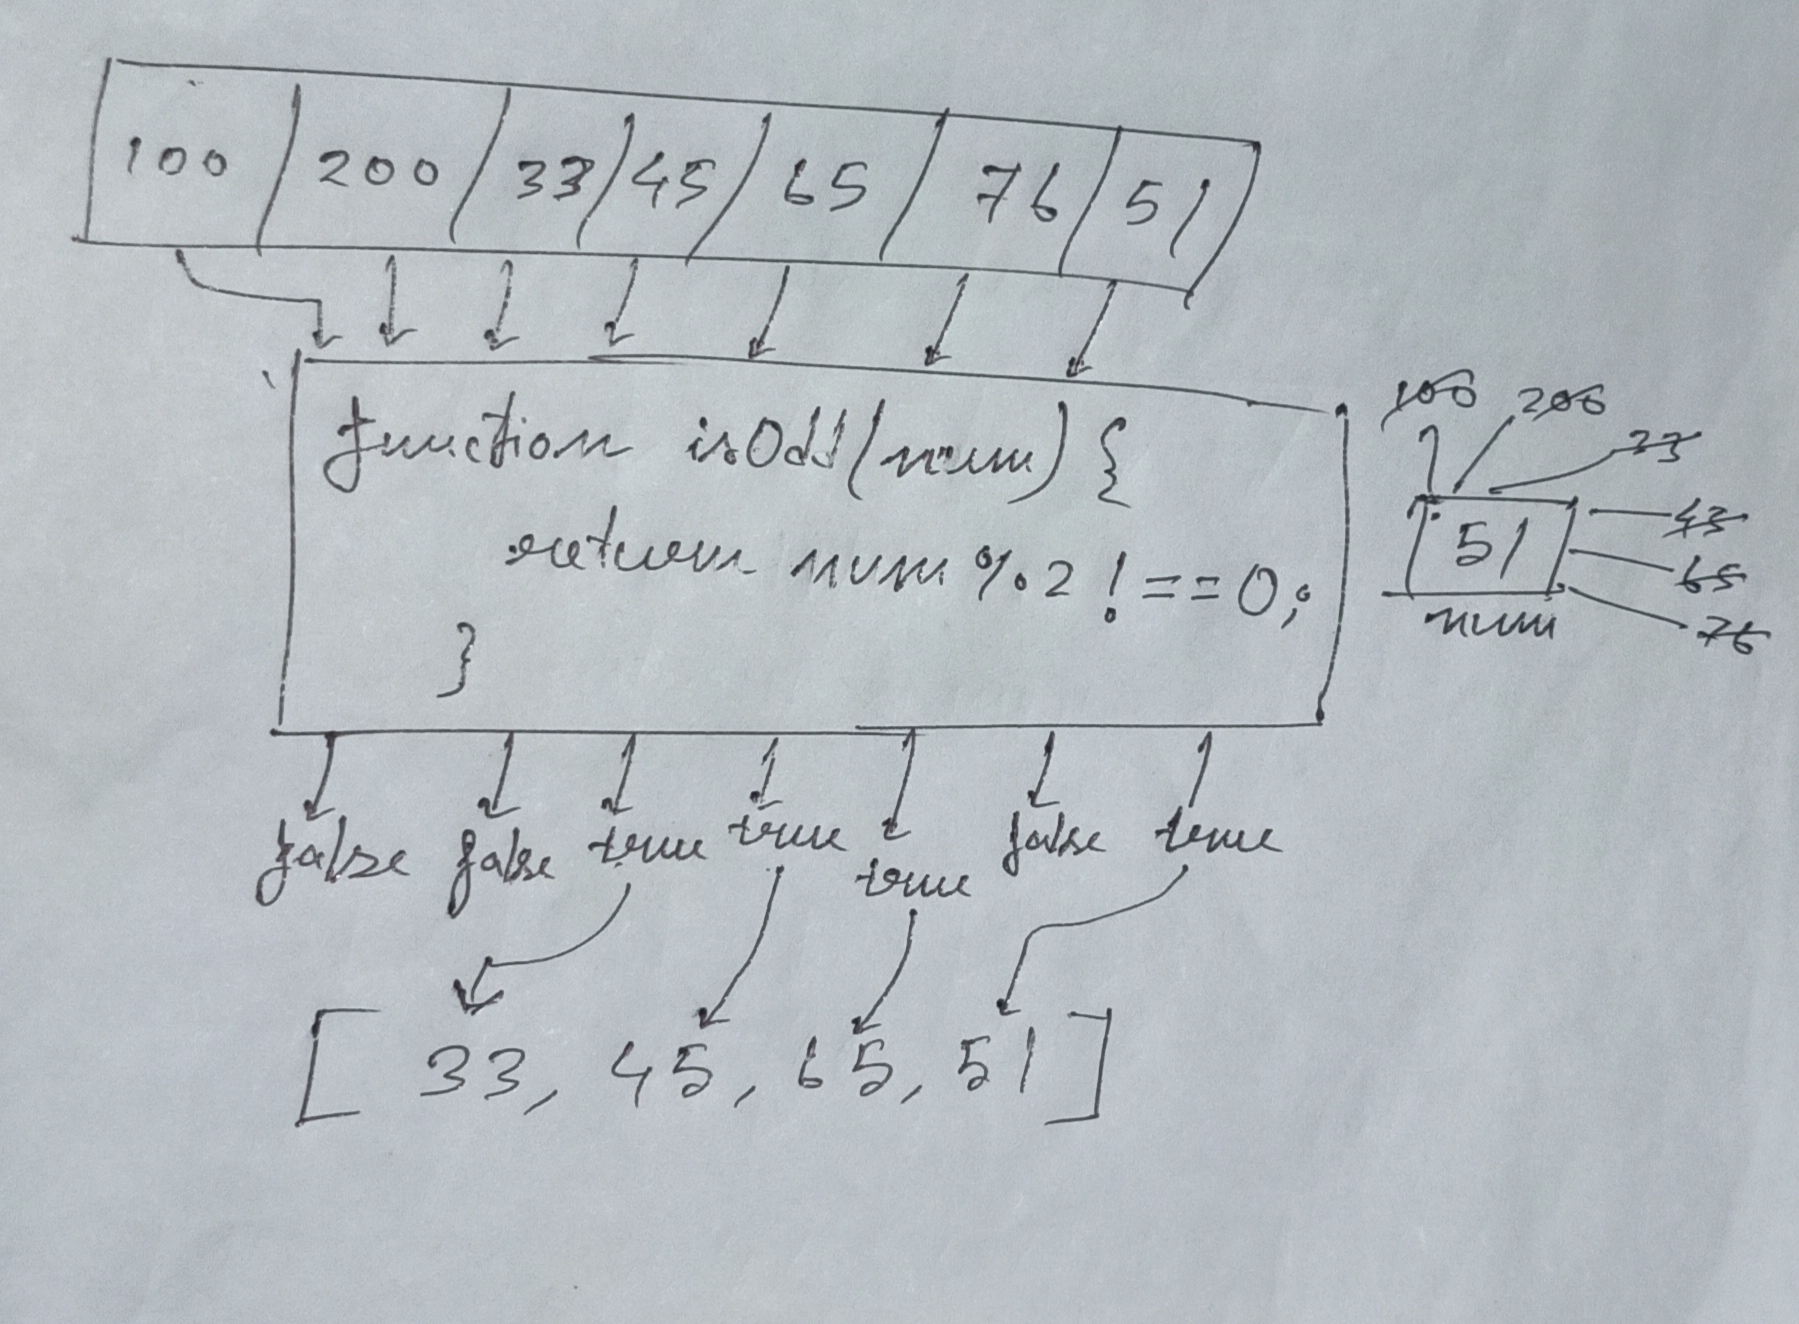 100 200 33 45 65 76 51
function isOdd(num) {
return num % 2 !== 0;
}
100 200
33
43
51
65
num
76
false false true true true false true
[ 33, 45, 65, 51 ]